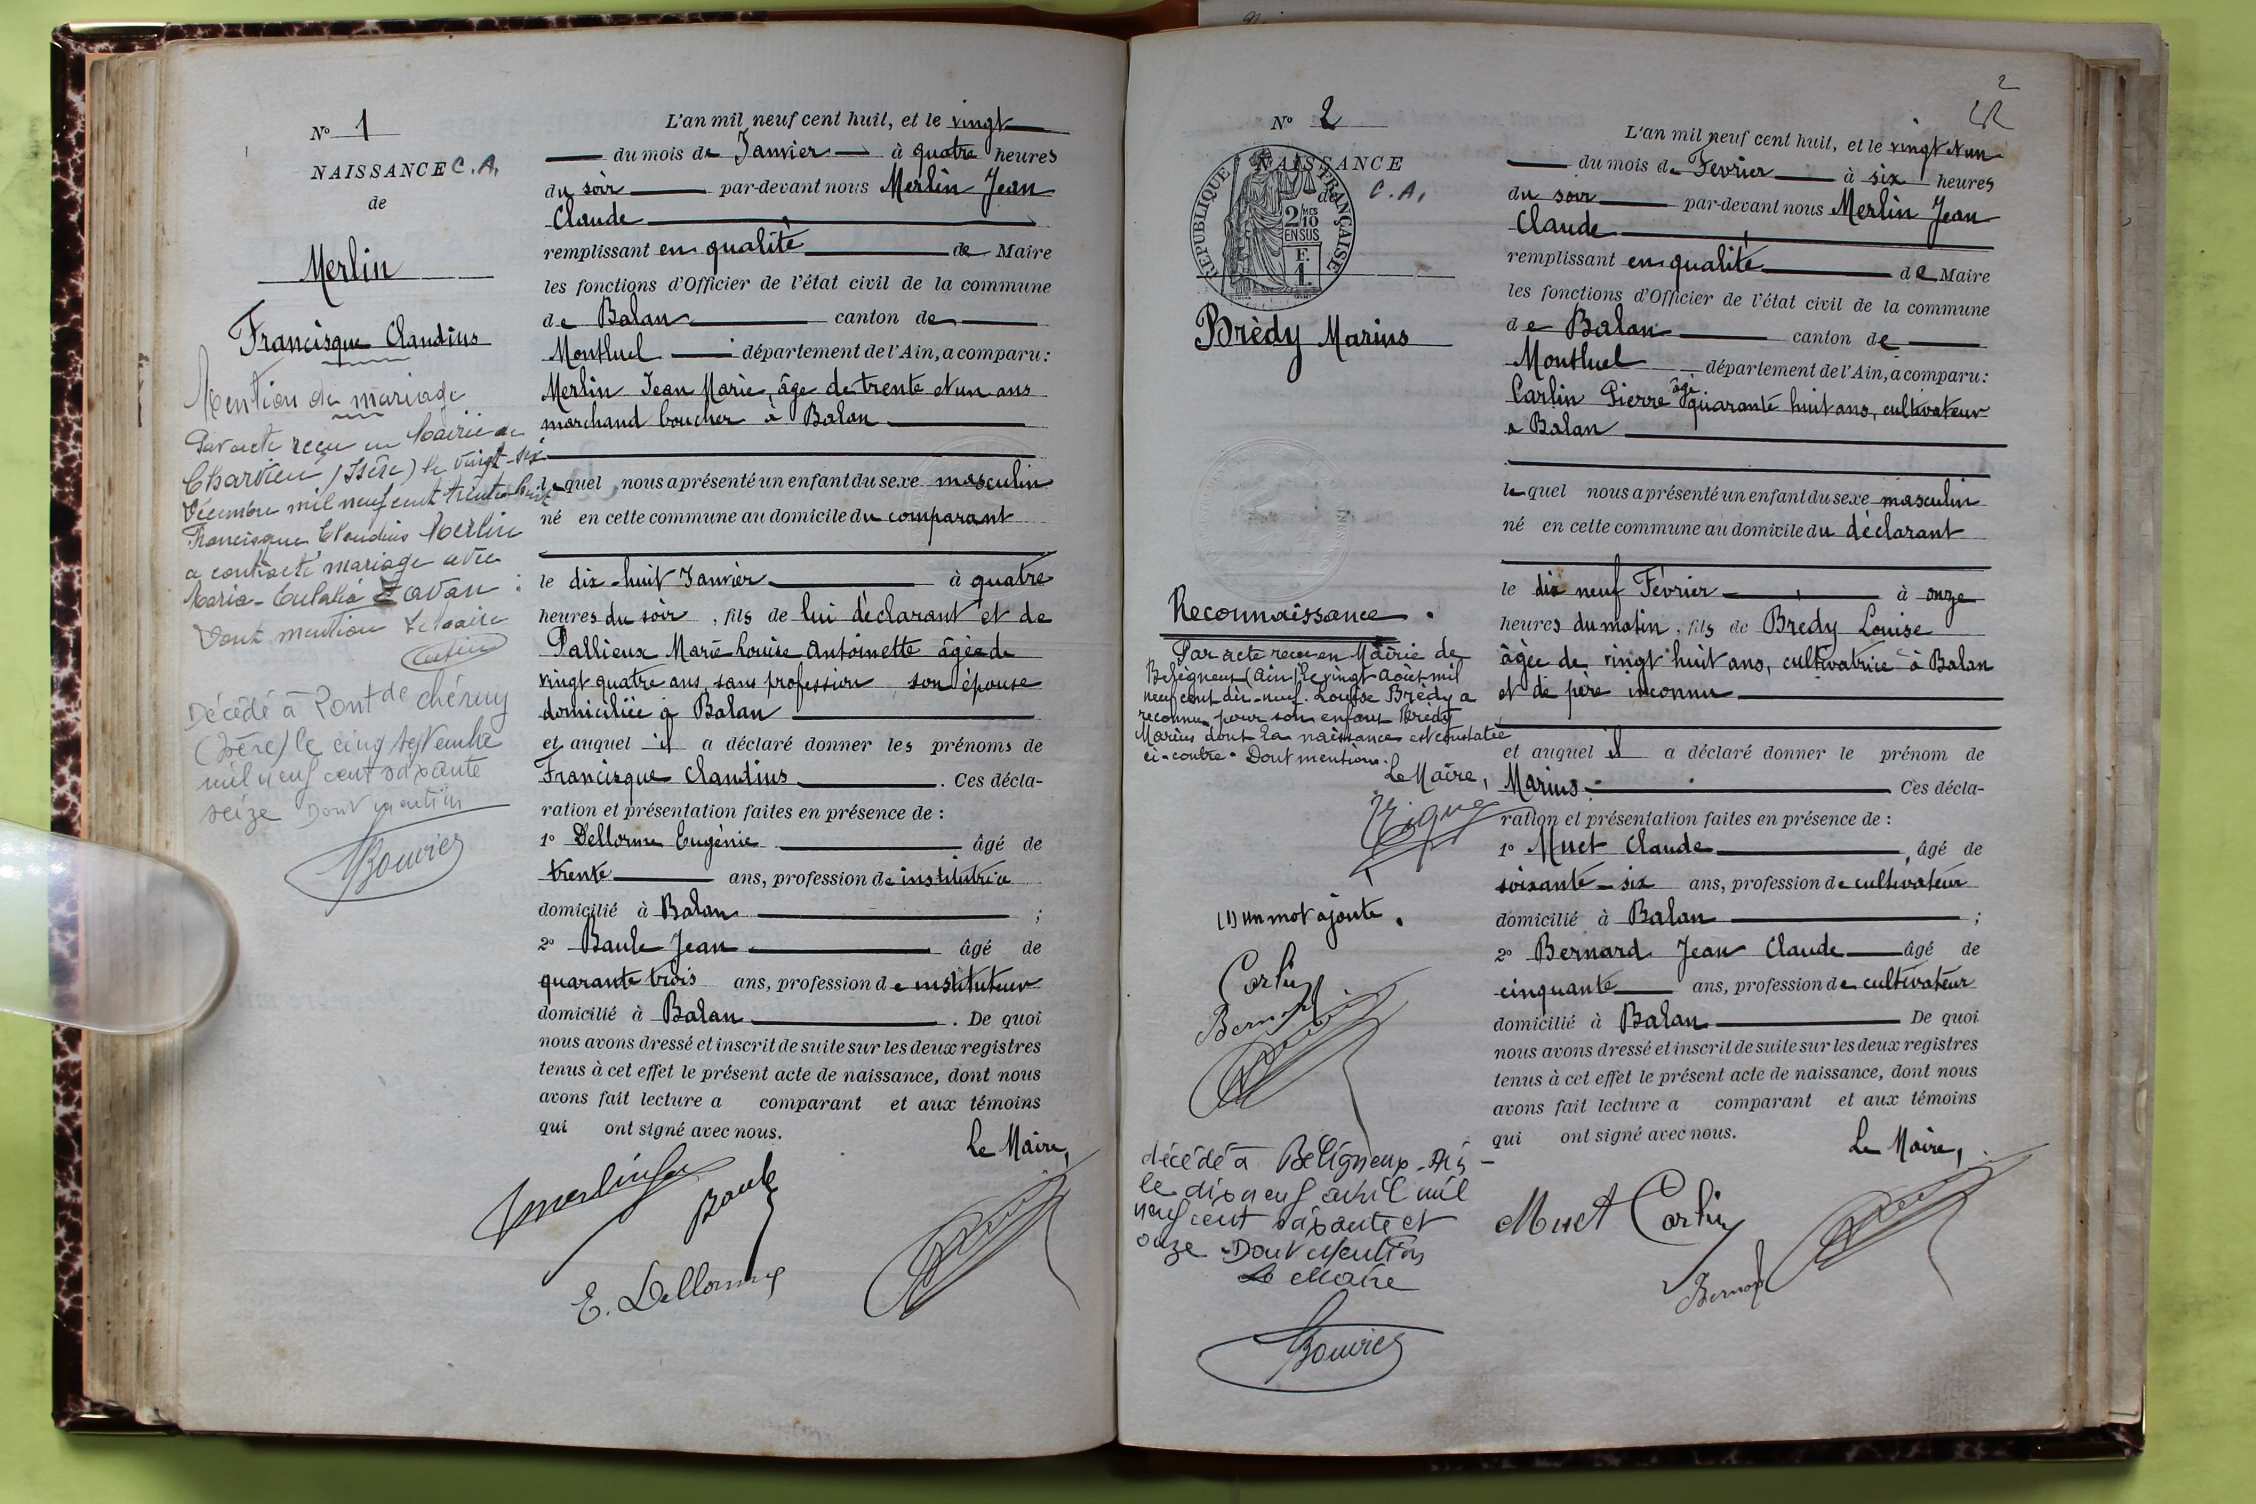 N° 1
NAISSANCE C. A.
de
Merlin
Francisque Claudius
Mention de mariage
Par acte reçu en Mairie de
Charvieu (Isère) le vingt-six
Décembre mil neuf cent trente huit
Francisque Claudius Merlin
a contracté mariage avec
Maria-Eulalia Zavan
Dont mention Le Maire
Décédé à Pont de chéruy
(Isère) le cinq septembre
mil neuf cent soixante
seize Dont mention
Bouvier
L'an mil neuf cent huit, et le vingt
du mois de Janvier à quatre heures
du soir par-devant nous Merlin Jean
Claude
remplissant en qualité de Maire
les fonctions d'Officier de l'état civil de la commune
de Balan canton de
Montluel département de l'Ain, a comparu :
Merlin Jean Marie, âgé de trente et un ans
marchand boucher à Balan
lequel nous a présenté un enfant du sexe masculin
né en cette commune au domicile du comparant
le dix-huit Janvier à quatre
heures du soir, fils de lui déclarant et de
Pallieux Marie Louise Antoinette âgée de
vingt quatre ans, sans profession, son épouse
domiciliée à Balan
et auquel il a déclaré donner les prénoms de
Francisque Claudius. Ces décla-
ration et présentation faites en présence de :
1° Dellorme Eugénie âgé de
trente ans, profession de institutrice
domicilié à Balan ;
2° Baule Jean âgé de
quarante trois ans, profession de instituteur
domicilié à Balan. De quoi
nous avons dressé et inscrit de suite sur les deux registres
tenus à cet effet le présent acte de naissance, dont nous
avons fait lecture a comparant et aux témoins
qui ont signé avec nous.
Le Maire,
Baule
E. Dellorme
2
N° 2
NAISSANCE
de C. A.
REPUBLIQUE FRANÇAISE
2/10 MES
EN SUS
F.
1.
Brèdy Marius
Reconnaissance.
Par acte reçu en Mairie de
Béligneux (Ain) le vingt Août mil
neuf cent dix-neuf. Louise Brèdy a
reconnu pour son enfant Brèdy
Marius dont la naissance est constatée
ci-contre. Dont mention.
Le Maire,
(1) un mot ajouté.
Carlin
Bernard
décédé à Béligneux-Ain-
le dix neuf avril mil
neuf cent soixante et
onze. Dont Mention
Le Maire
Bouvier
L'an mil neuf cent huit, et le vingt et un
du mois de Fevrier à six heures
du soir par-devant nous Merlin Jean
Claude
remplissant en qualité de Maire
les fonctions d'Officier de l'état civil de la commune
de Balan canton de
Montluel département de l'Ain, a comparu :
Carlin Pierre âgé quarante huit ans, cultivateur
a Balan
lequel nous a présenté un enfant du sexe masculin
né en cette commune au domicile du déclarant
le dix neuf Février à onze
heures du matin, fils de Bredy Louise
âgée de vingt huit ans, cultivatrice à Balan
et de père inconnu
et auquel il a déclaré donner le prénom de
Marius. Ces décla-
ration et présentation faites en présence de :
1° Muet Claude âgé de
soixante-six ans, profession de cultivateur
domicilié à Balan ;
2° Bernard Jean Claude âgé de
cinquante ans, profession de cultivateur
domicilié à Balan De quoi
nous avons dressé et inscrit de suite sur les deux registres
tenus à cet effet le présent acte de naissance, dont nous
avons fait lecture a comparant et aux témoins
qui ont signé avec nous.
Le Maire,
Muet Carlin
Bernard